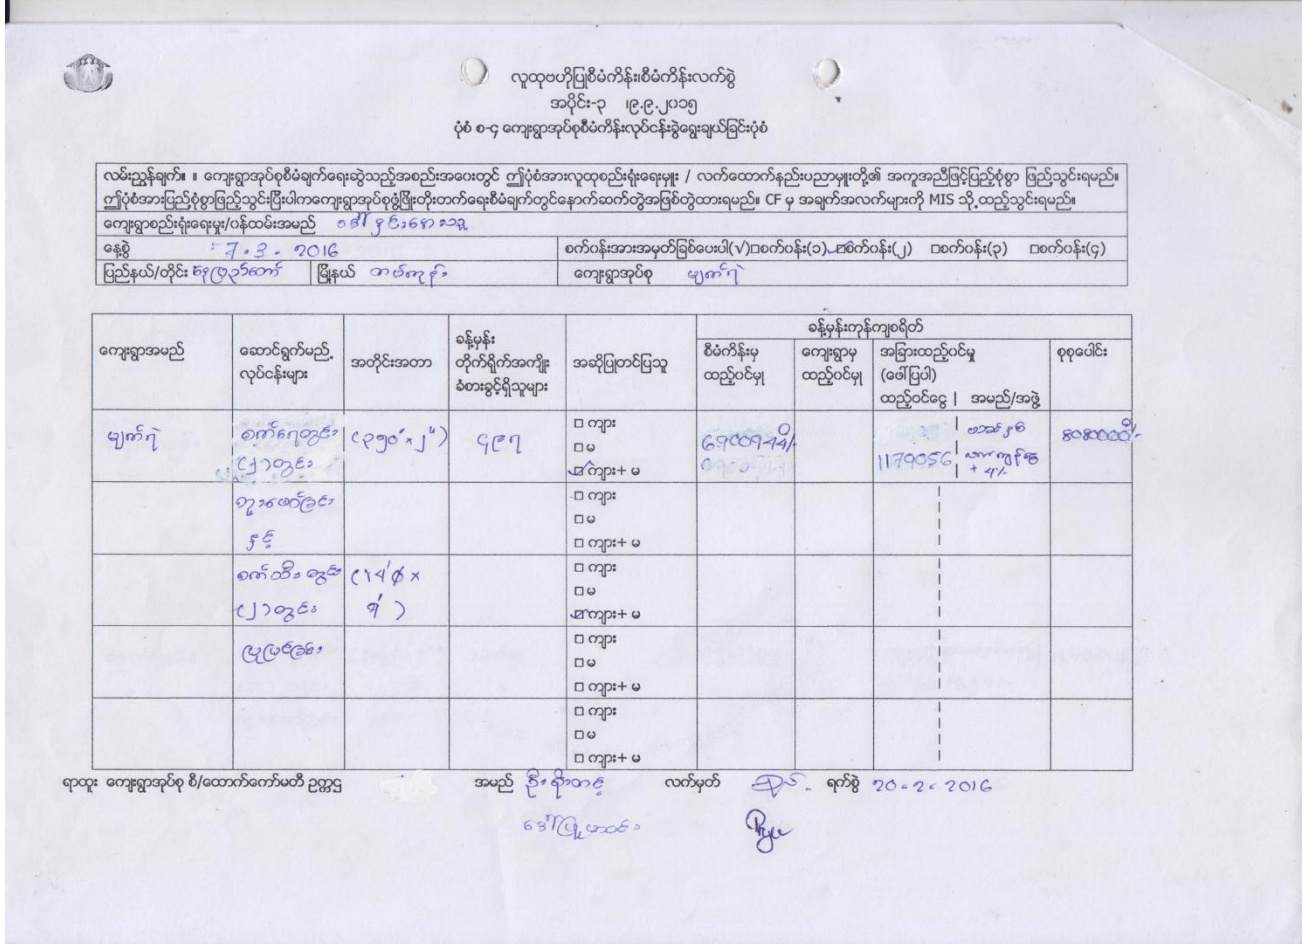 လူထုဗဟိုပြုစီမံကိန်း၊စီမံကိန်းလက်စွဲ
အပိုင်း-၃ ၊၉.၉.၂၀၁၅
ပုံစံ စ-၄ ကျေးရွာအုပ်စုစီမံကိန်းလုပ်ငန်းခွဲရွေးချယ်ခြင်းပုံစံ
လမ်းညွှန်ချက်။ ။ ကျေးရွာအုပ်စုစီမံချက်ရေးဆွဲသည့်အစည်းအဝေးတွင် ဤပုံစံအားလူထုစည်းရုံးရေးမှူး / လက်ထောက်နည်းပညာမှူးတို့၏ အကူအညီဖြင့်ပြည့်စုံစွာ ဖြည့်သွင်းရမည်။
ဤပုံစံအားပြည့်စုံစွာဖြည့်သွင်းပြီးပါကကျေးရွာအုပ်စုဖွံ့ဖြိုးတိုးတက်ရေးစီမံချက်တွင်နောက်ဆက်တွဲအဖြစ်တွဲထားရမည်။ CF မှ အချက်အလက်များကို MIS သို့ထည့်သွင်းရမည်။
ကျေးရွာစည်းရုံးရေးမှူး/ဝန်ထမ်းအမည်
နေ့စွဲ 7.3.2016 စက်ဝန်းအားအမှတ်ခြစ်ပေးပါ(√)□စက်ဝန်း(၁) ☑စက်ဝန်း(၂) □စက်ဝန်း(၃) □စက်ဝန်း(၄)
ပြည်နယ်/တိုင်း နေပြည်တော် မြို့နယ် တပ်ကုန်း ကျေးရွာအုပ်စု မျောက်ရဲ
ခန့်မှန်းကုန်ကျစရိတ်
ကျေးရွာအမည် ဆောင်ရွက်မည့် လုပ်ငန်းများ အတိုင်းအတာ ခန့်မှန်း တိုက်ရိုက်အကျိုး ခံစားခွင့်ရှိသူများ အဆိုပြုတင်ပြသူ စီမံကိန်းမှ ထည့်ဝင်မှု ကျေးရွာမှ ထည့်ဝင်မှု အခြားထည့်ဝင်မှု (ဖေါ်ပြပါ) ထည့်ဝင်ငွေ | အမည်/အဖွဲ့ စုစုပေါင်း
စက်ရေတွင်း (၃၅၀'×၂") ၄၉၇ □ ကျား 8080000/-
(၂)တွင်း □ မ 6900944/- 1179056
☑ ကျား+ မ
တူးဖော်ခြင်း □ ကျား
နှင့် □ မ
□ ကျား+ မ
□ ကျား
(၂)တွင်း □ မ
☑ ကျား+ မ
ပြုပြင်ခြင်း □ ကျား
□ မ
□ ကျား+ မ
□ ကျား
□ မ
□ ကျား+ မ
ရာထူး ကျေးရွာအုပ်စု စီ/ထောက်ကော်မတီ ဥက္ကဋ္ဌ အမည် လက်မှတ် ရက်စွဲ 20-2-2016